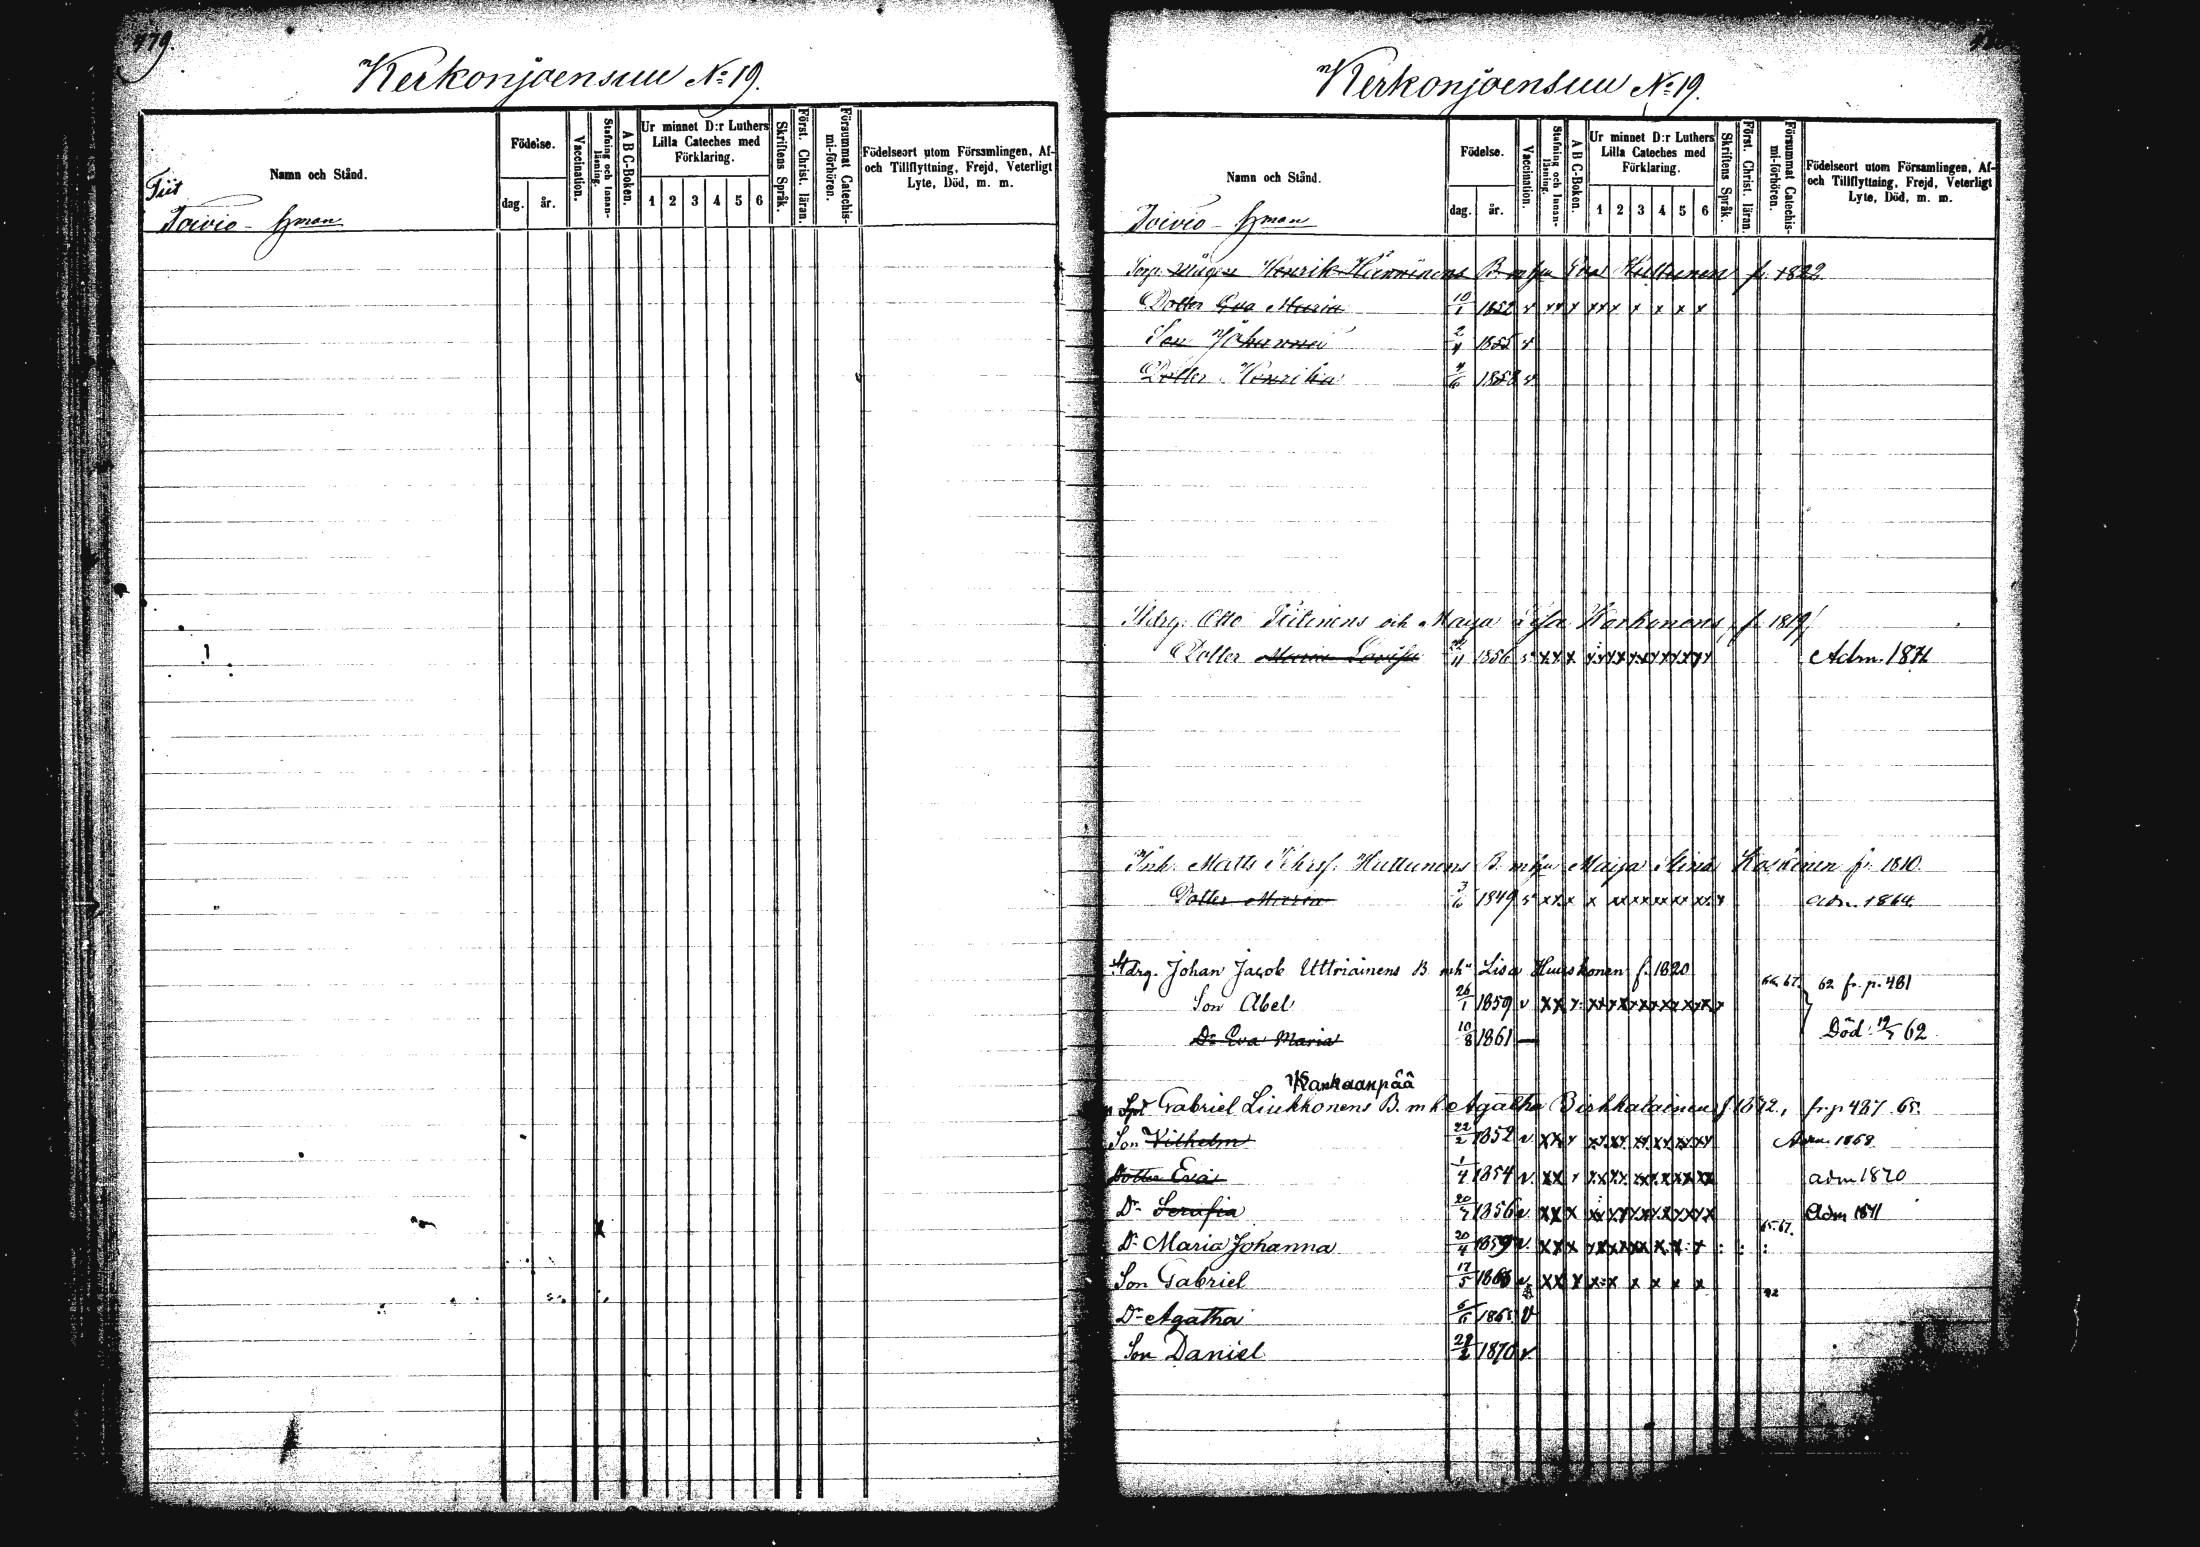 479.
Kerkonjoensuu No 19.
Namn och Stånd.
Födelse.
dag.
år.
Vaccination.
Stafning och Innanläsning.
A B C-Boken.
Ur minnet D:r Luthers
Lilla Cateches med
Förklaring.
1 2 3 4 5 6
Skriftens Språk.
Först. Christ. läran.
Försummat Catechismi-förhören.
Födelseort utom Församlingen, Af-
och Tillflyttning, Frejd, Veterligt
Lyte, Död, m. m.
Toivio
Kerkonjoensuu No 19.
Namn och Stånd.
Födelse.
dag.
år.
Vaccination.
Stafning och Innanläsning.
A B C-Boken.
Ur minnet D:r Luthers
Lilla Cateches med
Förklaring.
1 2 3 4 5 6
Skriftens Språk.
Först. Christ. läran.
Försummat Catechismi-förhören.
Födelseort utom Församlingen, Af-
och Tillflyttning, Frejd, Veterligt
Lyte, Död, m. m.
Toivio
Henrik B. m hu Eva Hultunen f. 1822
Dotter Eva Maria 10/1 1852 v
Son Johannes 2/4 1855 v
Dotter Henrika 1858 v
Otto och Maija Lisa Korkonens f. 1819
Dotter Maria Lovisa 1856 Adm. 1871
Inh. Matts Huttunens B. m hu Maija Stina Koskinen f. 1810.
Dotter Maria 1849 adm. 1864
Stdrg. Johan Jacob Uttriainens B. mhu Lisa Huuskonen f. 1820
Son Abel 26/1 1859 v 66.67. 62 fr. p. 481
Dr Eva Maria 10/8 1861 — Död 62
Kankaanpää
Gabriel Liukkonens B. m h Agatha Birkkalainen fr p 487. 65.
Son Vilhelm 22/2 1852 v Adm. 1868
Dotter Eva 1/4 1854 v. adm 1870
Dr Serafia 20/7 1856 v. Adm 1871
Dr Maria Johanna 20/4 1859 v. 65.67.
Son Gabriel 17/5 v.
Dr Agatha v
Son Daniel 1870 v.